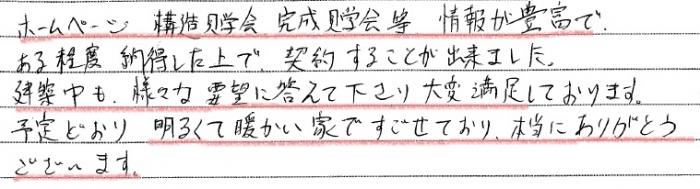 ホームページ 構造見学会 完成見学会等 情報が豊富で、
ある程度 納得した上で、契約することが出来ました。
建築中も、様々な要望に答えて下さり大変満足しております。
予定どおり 明るくて暖かい家ですごせており、本当にありがとう
ございます。